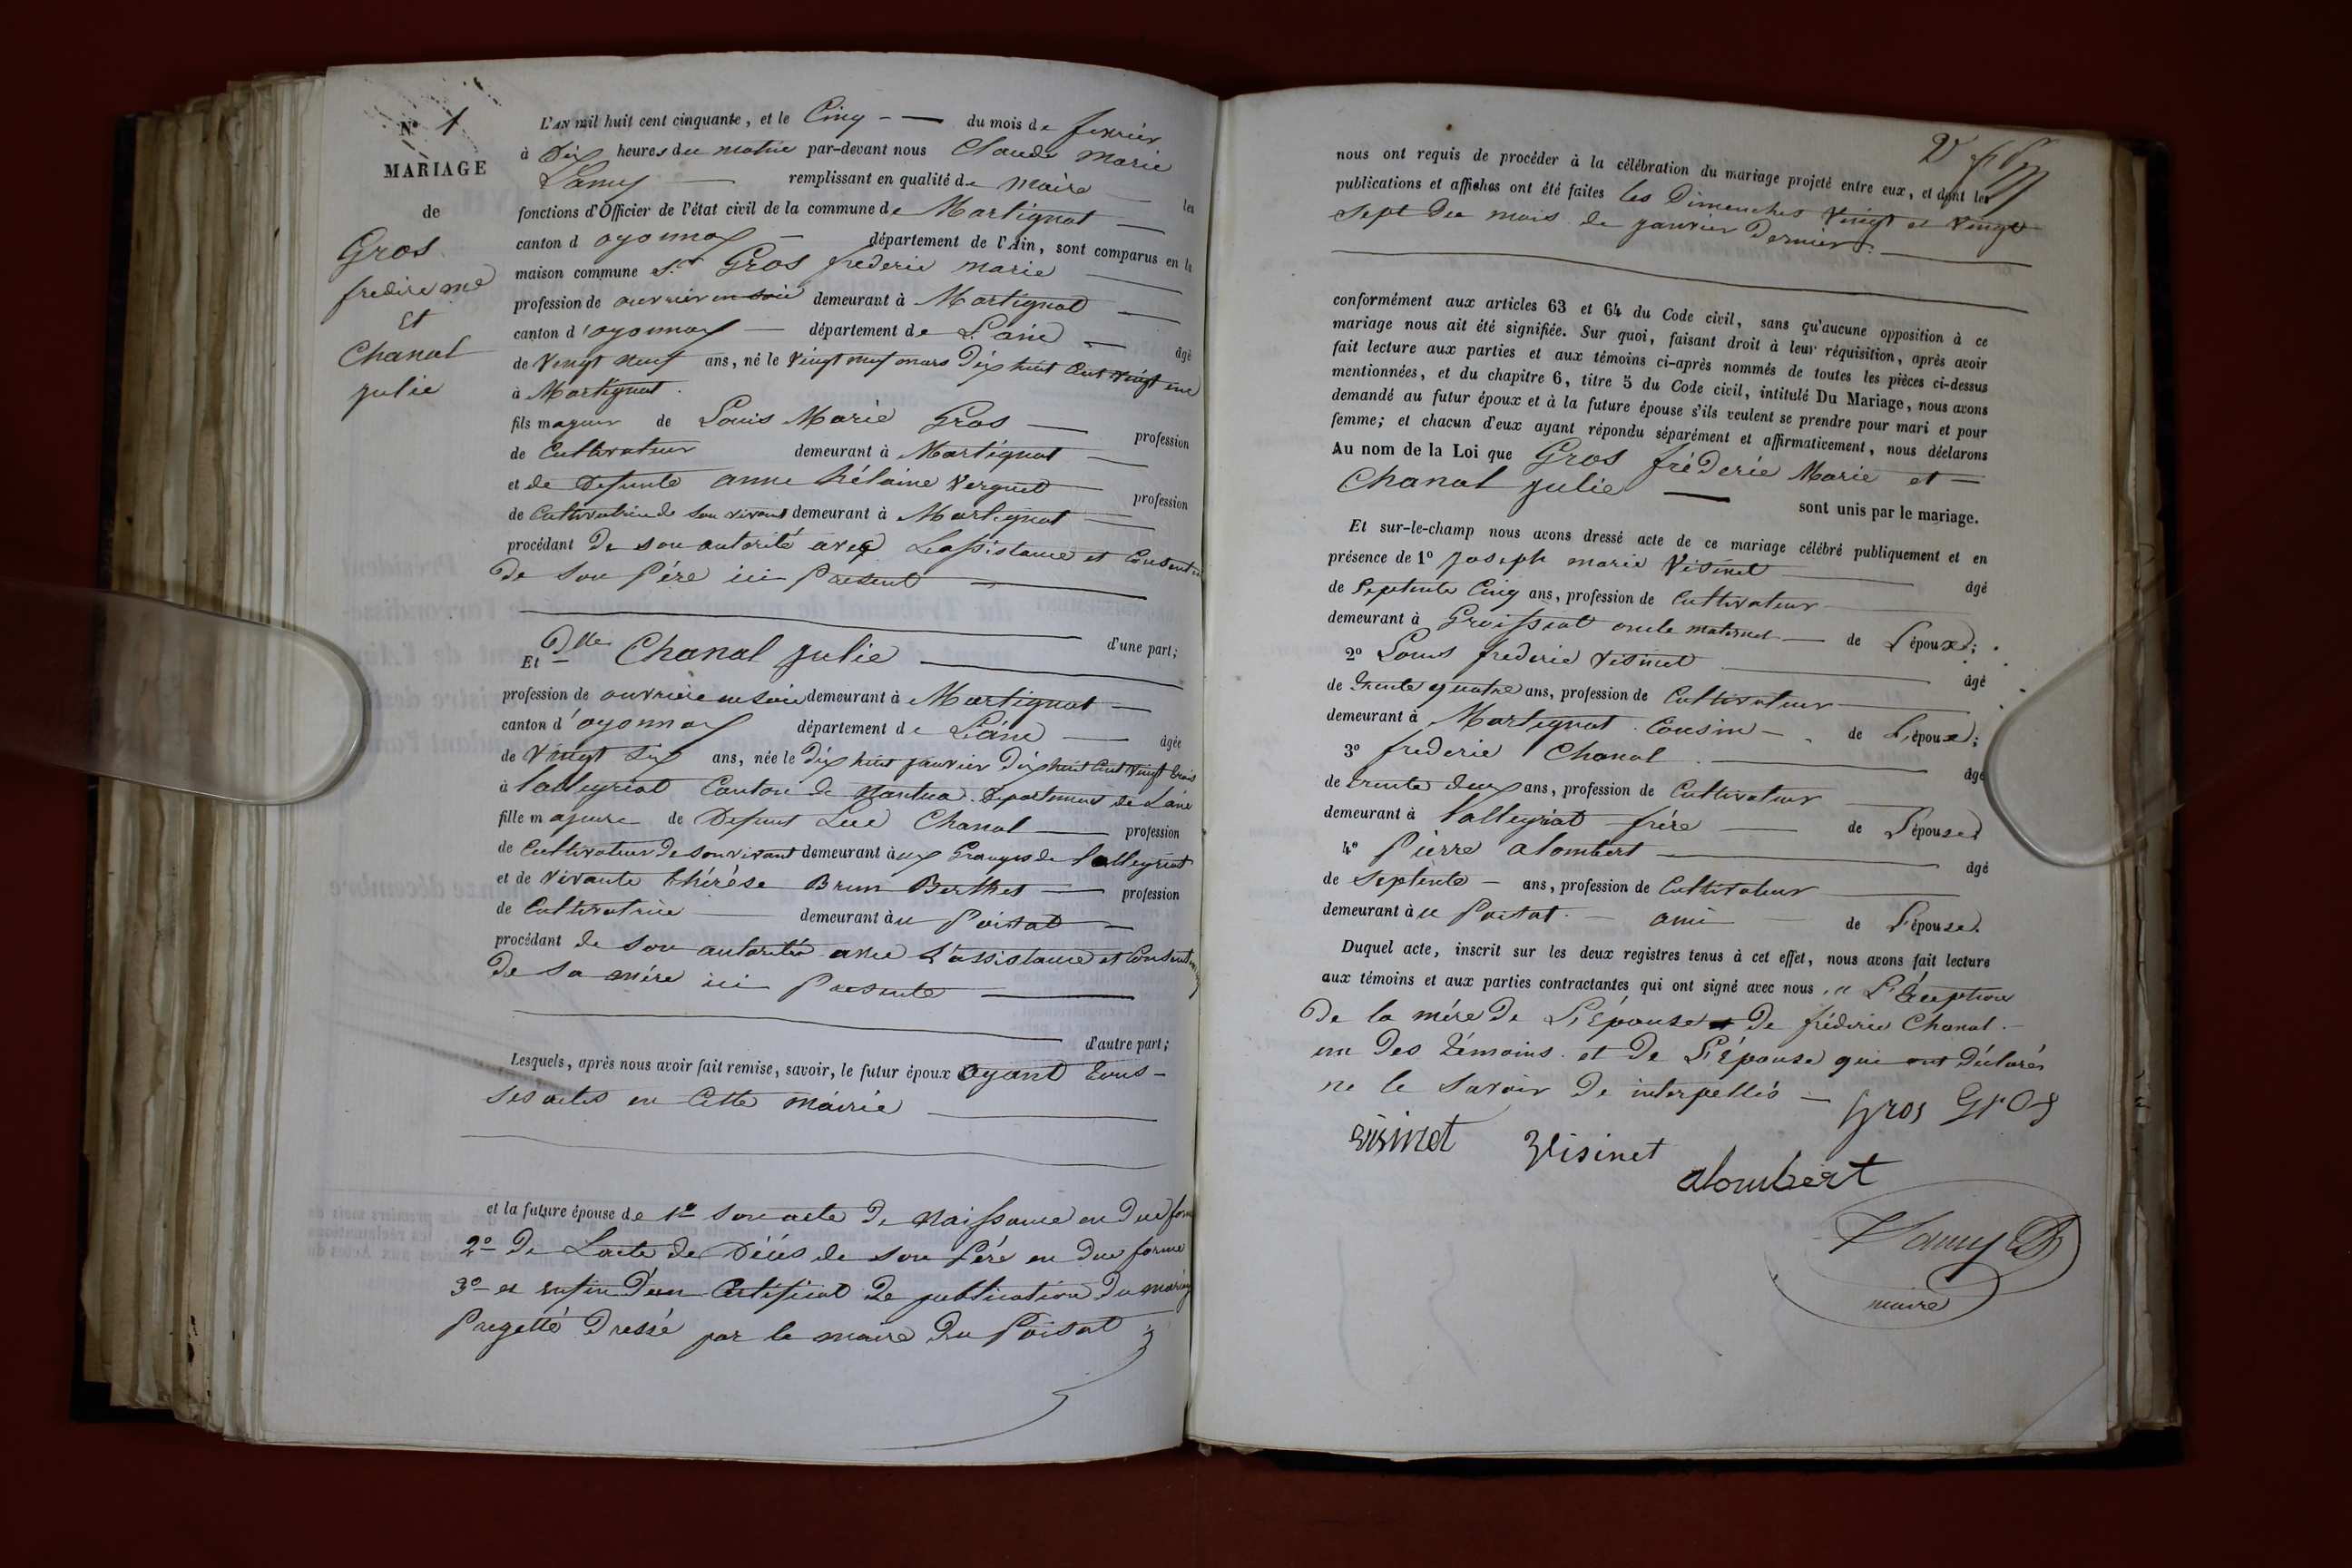 N° 1
MARIAGE
de
Gros
frederic me
Et
Chanal
julie
L'AN mil huit cent cinquante, et le Cinq du mois de fevrier
à Dix heures du matin par-devant nous Claude Marie
Lamy remplissant en qualité de Maire les
fonctions d'Officier de l'état civil de la commune de Martignat
canton d oyonnax département de l'Ain, sont comparus en la
maison commune Sr Gros frederic marie
profession de ouvrier en soie demeurant à Martignat
canton d'oyonnax département de L'ain âgé
de vingt neuf ans, né le vingt neuf mars Dix huit Cent vingt une
à Martignat.
fils majeur de Louis Marie Gros profession
de Cultivateur demeurant à Martignat
et de Defunte anne hélaine verguet profession
de Cultivatrice de son vivant demeurant à Martignat
procédant De son autorité avec Lassistance et Consentem
De son Père ici Present
d'une part;
Et Dlle Chanal Julie
profession de ouvriere en soie demeurant à Martignat
canton d'oyonnax département de L'ain âgée
de Vingt Six ans, née le Dix huit janvier Dix huit Cent vingt trois
à Lalleyriat Canton de Nantua Departement de L'ain
fille majeure de Defunt Luc Chanal profession
de Cultivateur De son vivant demeurant aux Granges de Lalleyriat
et de vivante thérèse Brun Berthet profession
de Cultivatrice demeurant au Poizat
procédant de son autorité avec L'assistance et Consentem
De sa mère ici Presente
d'autre part;
Lesquels, après nous avoir fait remise, savoir, le futur époux ayant tous
ses actes en Cette Mairie
et la future épouse de 1° son acte De Naissance en Due forme
2° De Lacte de Décès de son Père en Due forme
3° et enfin D'un Certificat De publication Du mariage
Progetté Dressé par le maire Du Poisat
nous ont requis de procéder à la célébration du mariage projeté entre eux, et dont les
publications et affiches ont été faites les Dimanches vingt et vingt
sept Du mois de janvier Dernier
conformément aux articles 63 et 64 du Code civil, sans qu'aucune opposition à ce
mariage nous ait été signifiée. Sur quoi, faisant droit à leur réquisition, après avoir
fait lecture aux parties et aux témoins ci-après nommés de toutes les pièces ci-dessus
mentionnées, et du chapitre 6, titre 5 du Code civil, intitulé Du Mariage, nous avons
demandé au futur époux et à la future épouse s'ils veulent se prendre pour mari et pour
femme; et chacun d'eux ayant répondu séparément et affirmativement, nous déclarons
Au nom de la Loi que Gros fréderic Marie et
Chanal julie sont unis par le mariage.
Et sur-le-champ nous avons dressé acte de ce mariage célébré publiquement et en
présence de 1° Joseph marie Visinet âgé
de Septente Cinq ans, profession de Cultivateur
demeurant à Groissiat oncle maternel de L'époux;
2° Louis frederic visinet âgé
de trente quatre ans, profession de Cultivateur
demeurant à Martignat Cousin de L'époux;
3° frederic Chanal âgé
de trente deux ans, profession de Cultivateur
demeurant à Lalleyriat frére de L'épouse
4° Pierre alombert âgé
de Septente ans, profession de Cultivateur
demeurant au Poisat ami de L'épouse.
Duquel acte, inscrit sur les deux registres tenus à cet effet, nous avons fait lecture
aux témoins et aux parties contractantes qui ont signé avec nous, à L'Exception
De la mére De L'Epouse De fréderic Chanal
un Des témoins et De L'Epouse qui ont Déclarés
ne le Savoir De interpellés Gros Gros
visinet Visinet
alombert
Lamy
maire